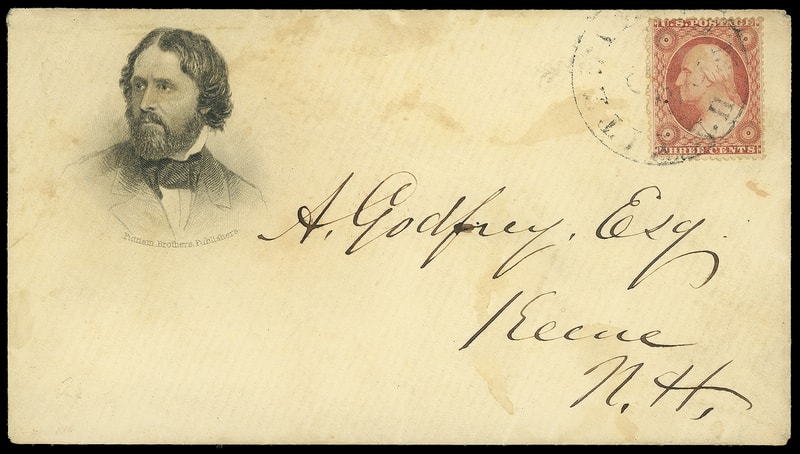 U.S. POSTAGE
THREE CENTS
Putnam, Brothers, Publishers.
A. Godfrey, Esq.
Keene
N. H,